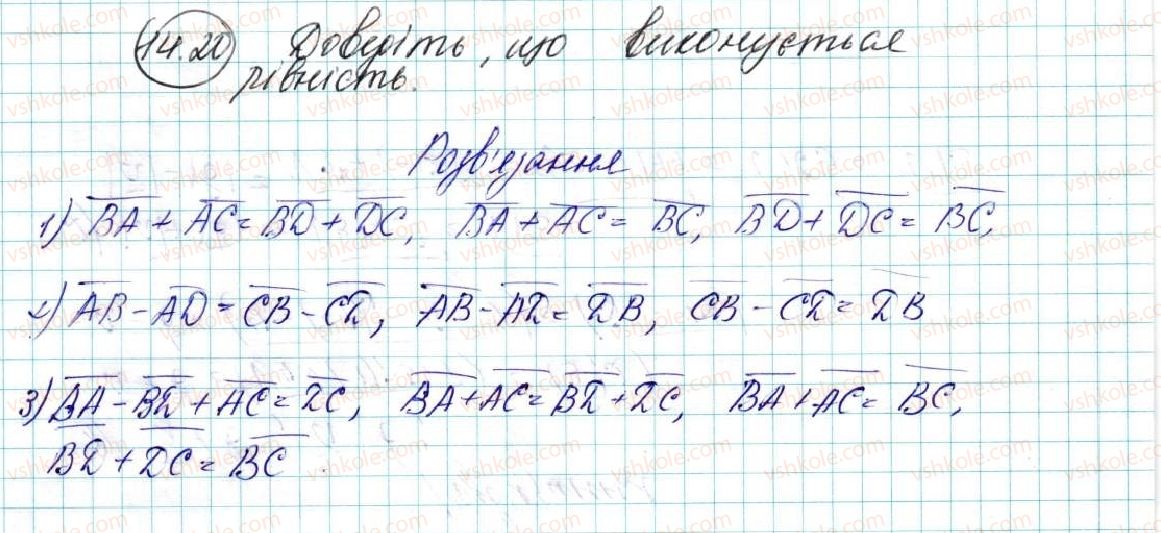 14.20 Доведіть, що виконується
рівність.
Розв'язання
1) BA + AC = BD + DC, BA + AC = BC, BD + DC = BC,
2) AB - AD = CB - CD, AB - AD = DB, CB - CD = DB
3) BA - BD + AC = DC, BA + AC = BD + DC, BA + AC = BC,
BD + DC = BC